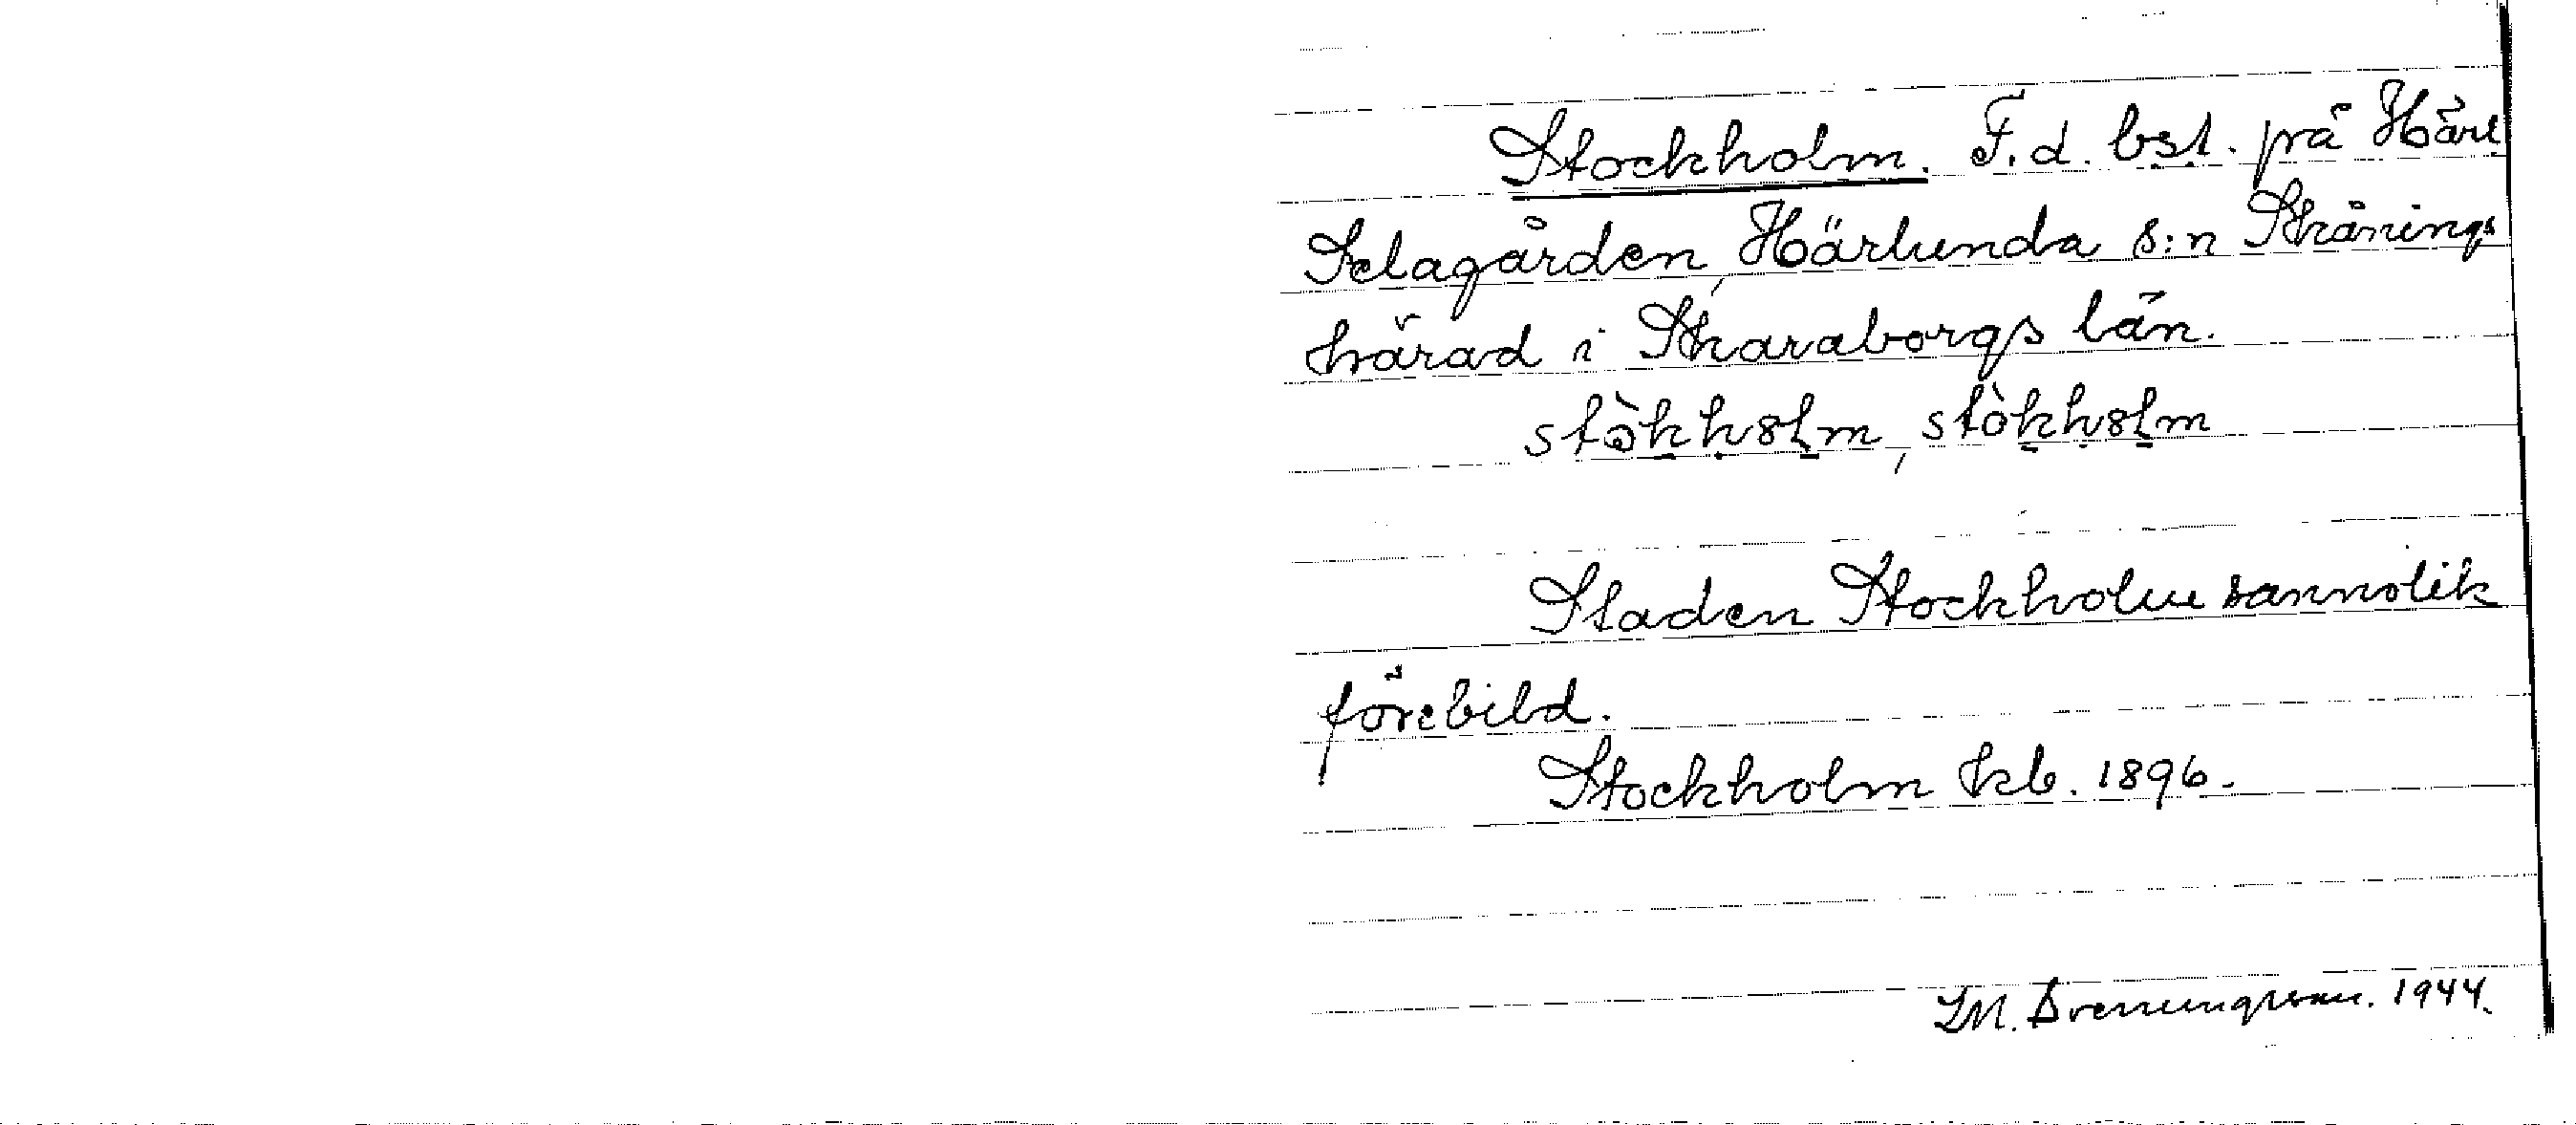 Stockholm. F.d. bst. på Härl
Selagården, Härlunda s:n Skånings
härad i Skaraborgs län.
stòkholm, stòkholm
Staden Stockholm sannolik
förebild.
Stockholm kb. 1896.
1944.